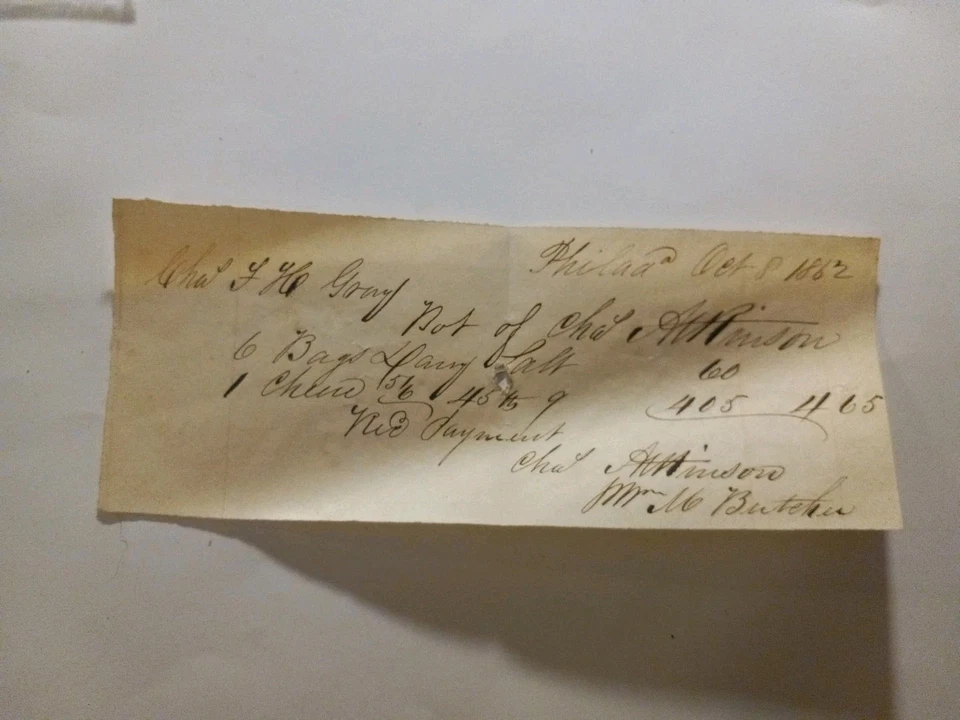 Philada Oct 8 1862
Chas F H Gray
Bot of Chas Atkinson
6 Bags Dairy Salt 60
1 Cheese 51/6 45 lb 9 405 4 65
Recd Payment
Chas Atkinson
pr Wm M Butcher